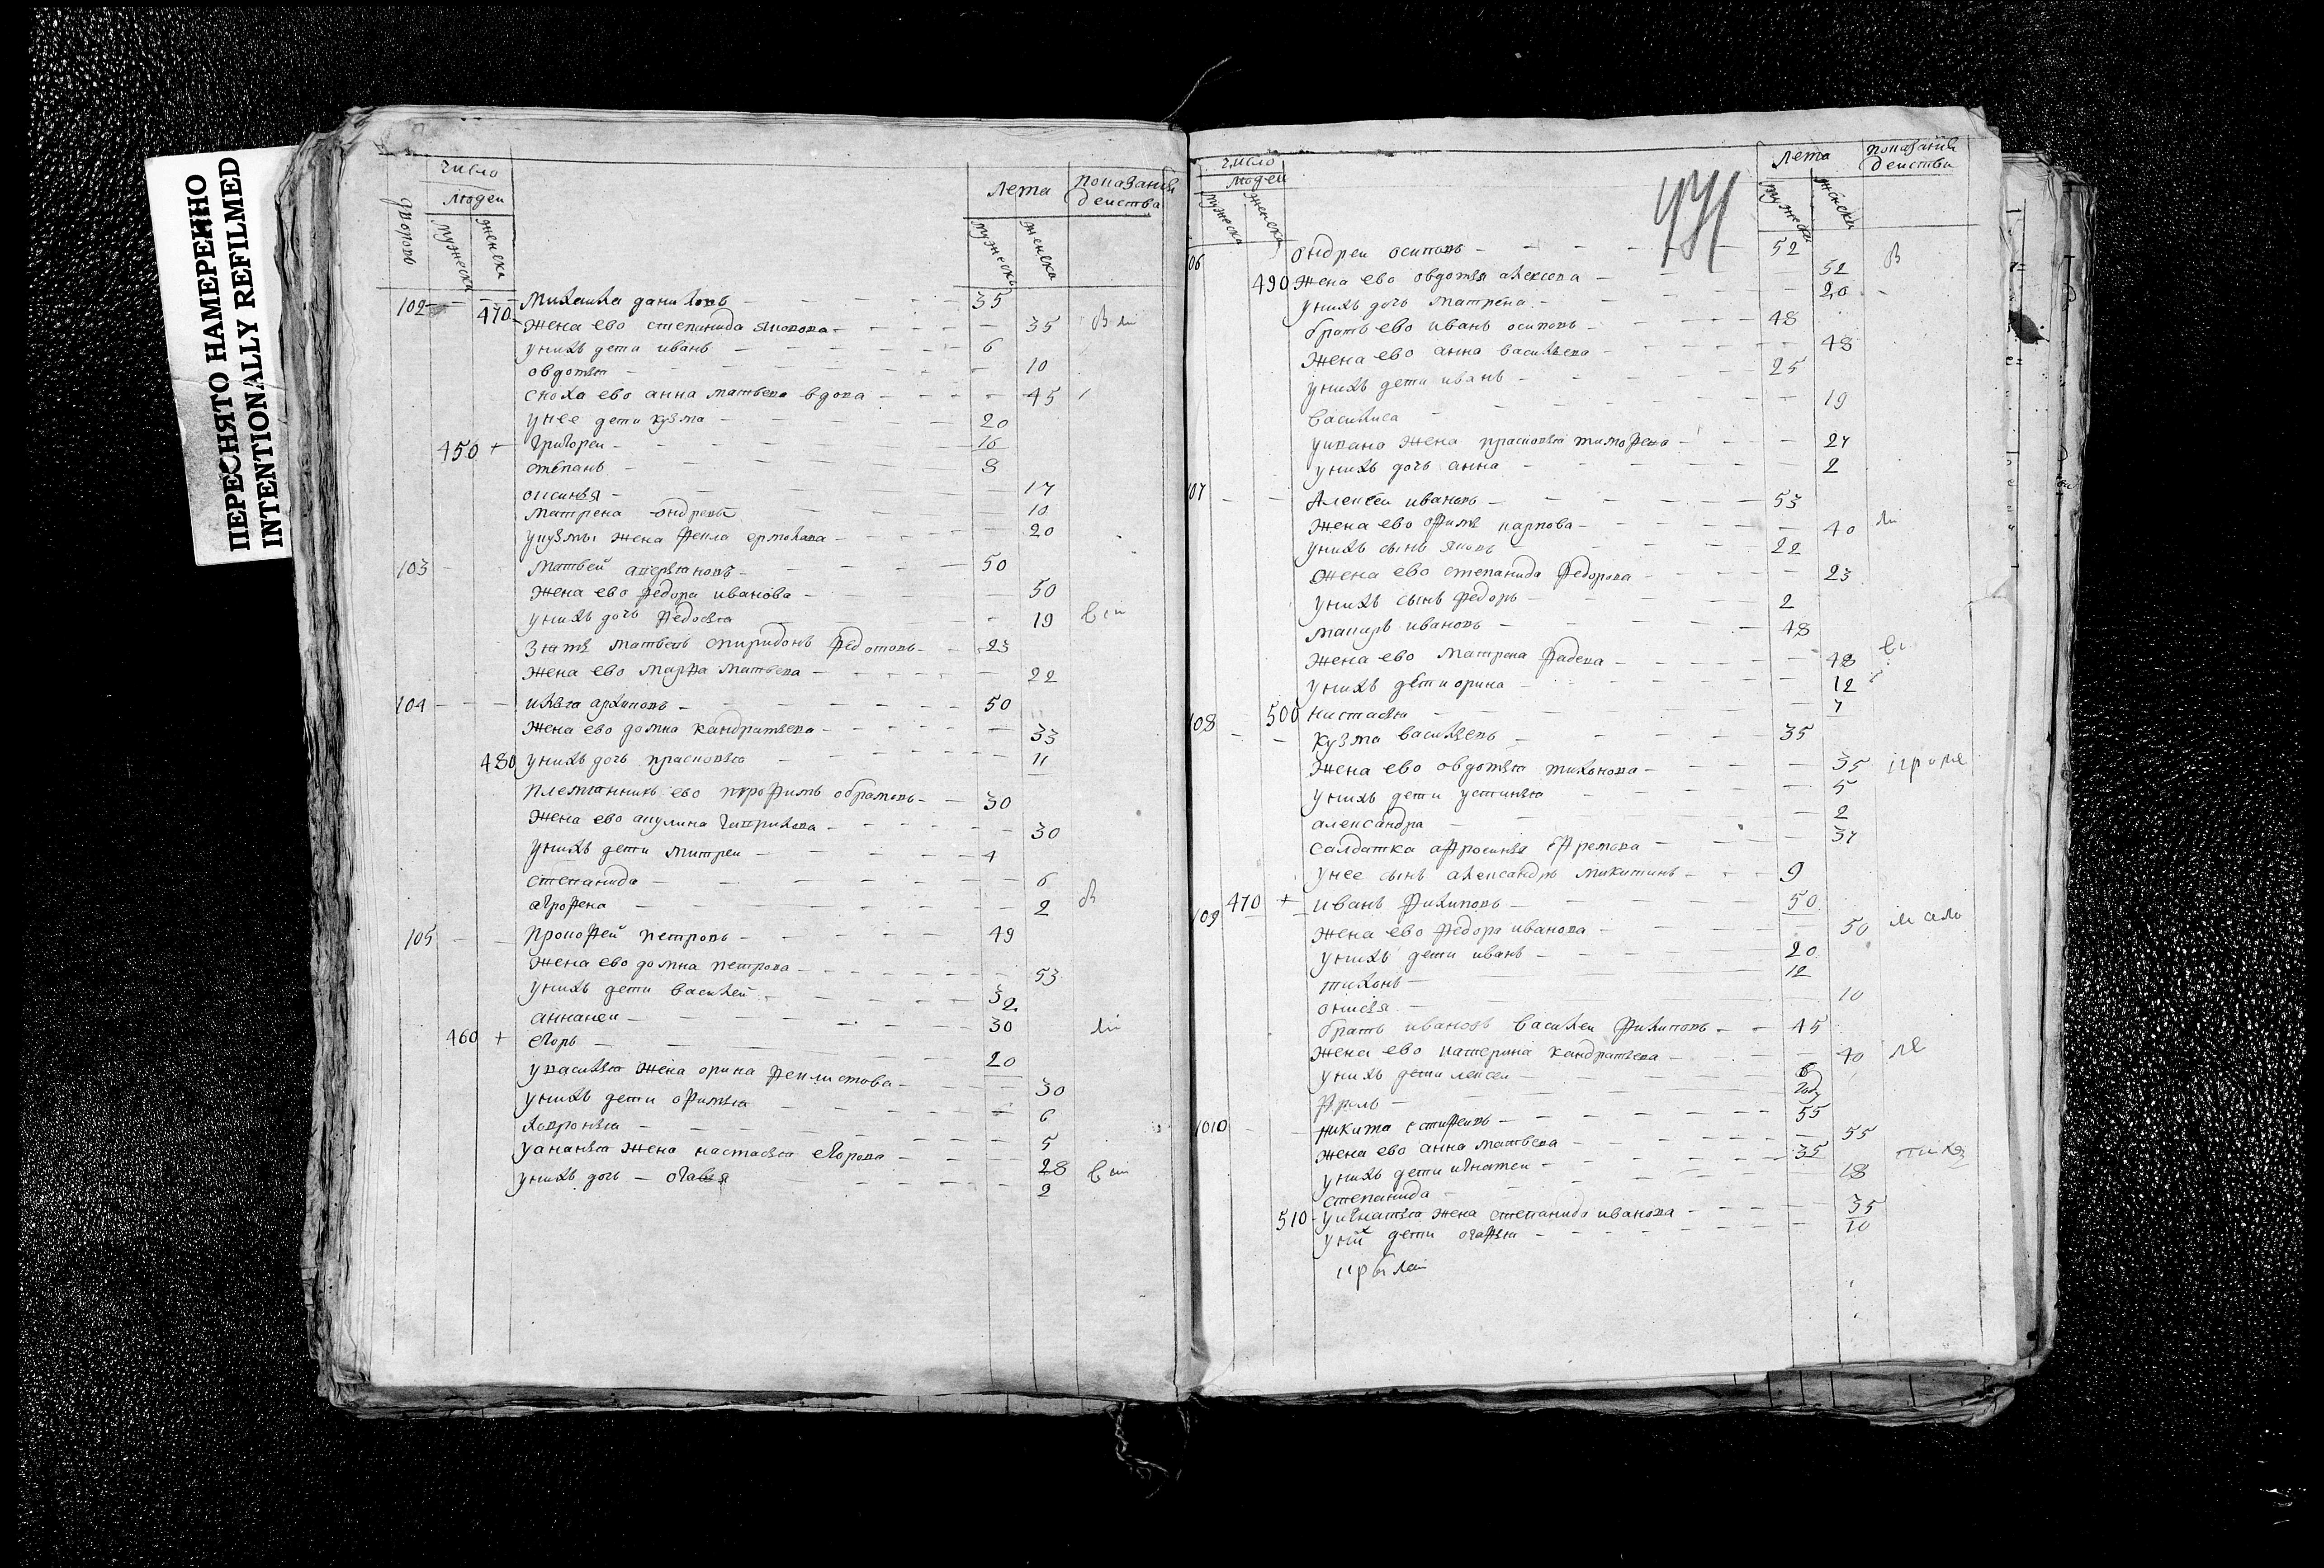 ПЕРЕСНЯТО НАМЕРЕННО
INTENTIONALLY REFILMED
число людей лета показания действа
дворовъ мужеска женска мужеска женска
102 Михаила данилов 35
470 жена ево степанида яковова 35
у нихъ дети иванъ 6
овдотья 10
сноха ево анна матвева вдова 45
у нее дети кузма 20
450 + григореи 16
степанъ 8
оксинья 17
матрена ондревы 10
у кузмы жена фекла ермолова 20
103 Матвеи 50
жена ево федора иванова 50
у нихъ дочь федосья 19
зять матвевъ спиридонъ федотовъ 23
жена ево марфа матвева 22
104 илья архиповъ 50
жена ево домна кандратьева 33
480 у нихъ дочь прасковья 11
племянникъ ево трофимъ обрамовъ 30
жена ево акулина гаврилова 30
у нихъ дети митреи 4
степанида 6
агрофена 2
105 Прокофеи петровъ 49
жена ево домна петрова 53
у нихъ дети василеи 32
аннанеи 30
460 + егоръ 20
у василья жена орина феклистова 30
у нихъ дети офимья 6
хавронья 5
у ананья жена настасья егорова 28
у нихъ дочь огавья 2
число людей лета показания действи
мужеска женска мужески женски
06 ондреи осиповъ 52
490 жена ево овдотья алексева 52
у нихъ дочь матрена 20
братъ ево иванъ осиповъ 48
жена ево анна васильева 48
у нихъ дети иванъ 25
василиса 19
у ивана жена прасковья тимофева 27
у нихъ дочь анна 2
07 Алексеи ивановъ 53
жена ево офимья карпова 40
у нихъ сынъ яковъ 22
жена ево степанида федорова 23
у нихъ сынъ федоръ 2
макаръ ивановъ 48
жена ево матрена фадева 48
у нихъ дети орина 12
500 настасья 7
108 кузма васильевъ 35
жена ево овдотья тихонова 35
у нихъ дети устинья 5
александра 2
салдатка афросинья ефремова 37
у нее сынъ александръ микитинъ 9
109 470 + иванъ филиповъ 50
жена ево федора иванова 50
у нихъ дети иванъ 20
тихонъ 12
онисья 10
братъ ивановъ василеи филиповъ 45
жена ево катерина кандратьева 40
у нихъ дети лексеи 6
фролъ
1010 никита 55
жена ево анна матвева 55
у нихъ дети игнатеи 35
степанида 18
510 у игнатья жена степанида иванова 35
у них дети огафья 10